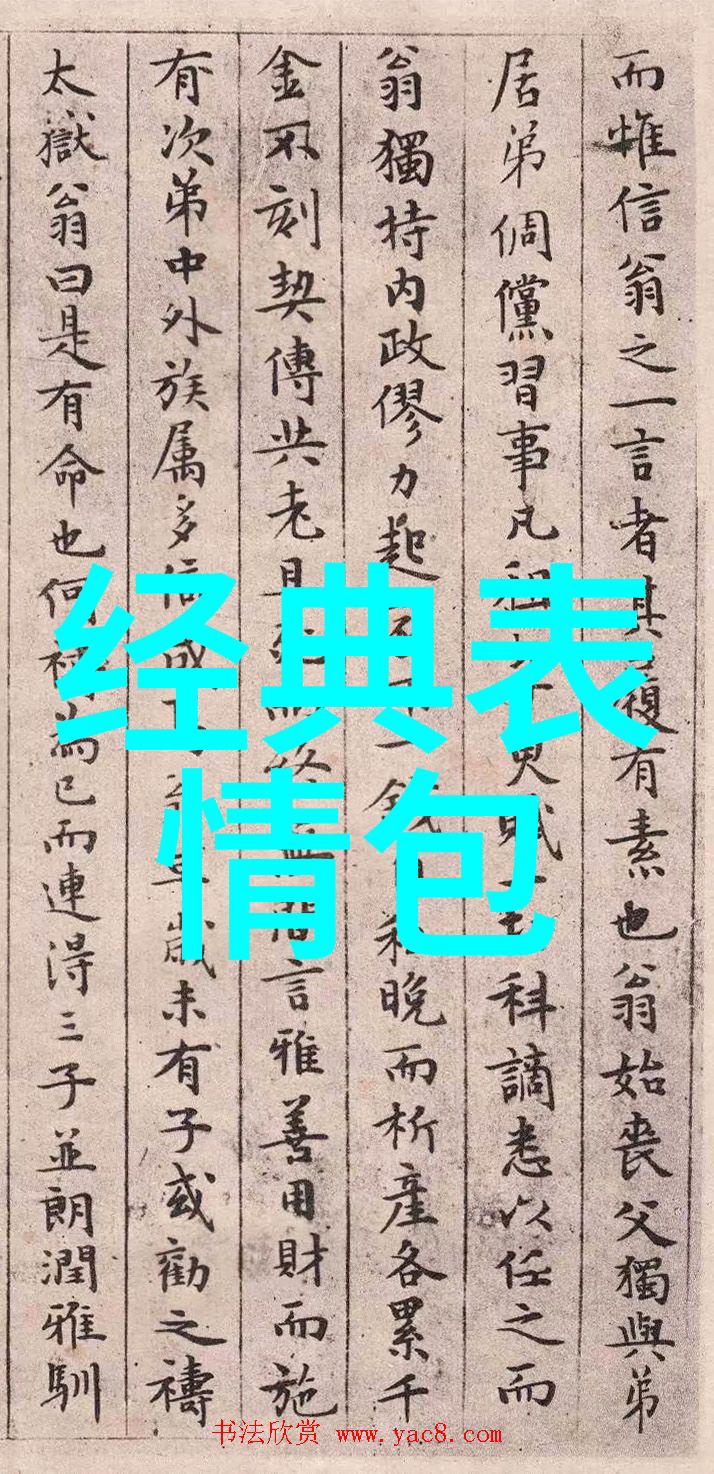 而惟信翁之一言者其履有素也翁始丧父獨與弟
居弟倜儻習事凡租賦科謫悉以任之而
翁獨持内政僇力起一錢私晚而析產各累千
金不刻契傳其老且言雅善用財而施
有次弟中外族属多信歲未有子或勸之禱
太嶽翁曰是有命也何禱為已而連得三子並朗潤雅馴
经典表
情包
书法欣赏 www.yac8.com